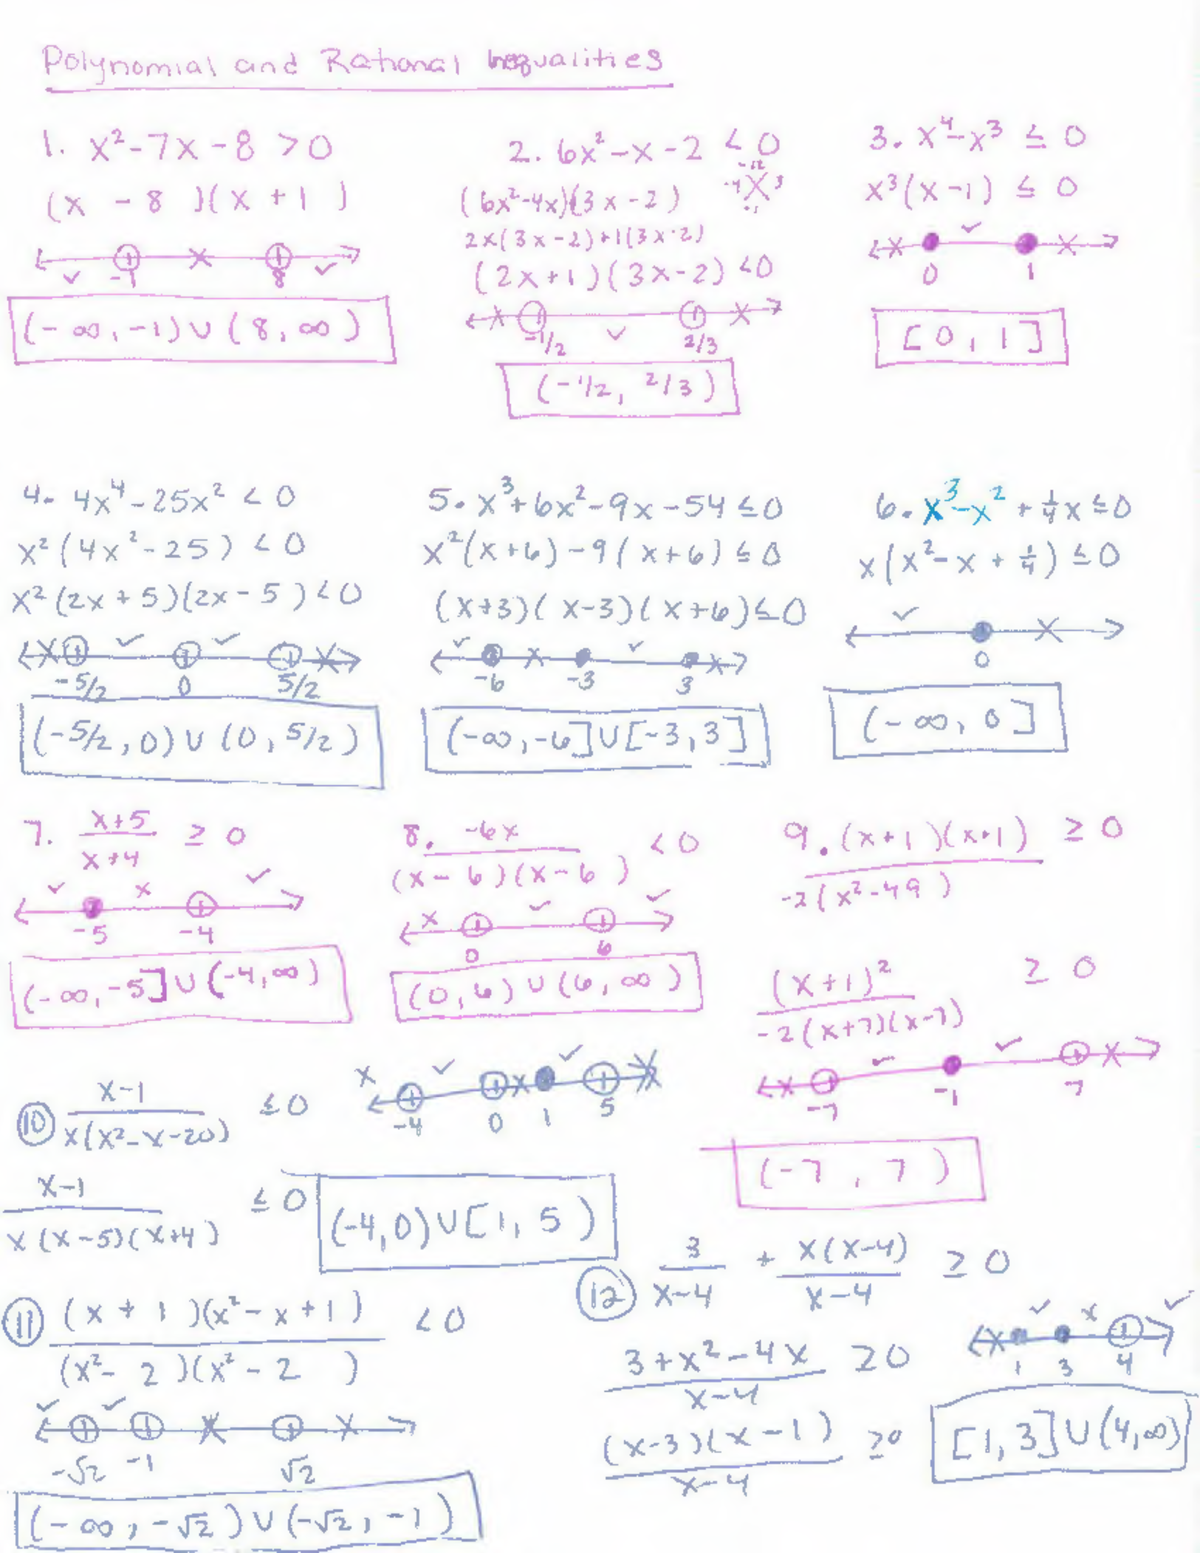 Polynomial and Rational Inequalities
1. x²-7x-8 >0
(x - 8)(x + 1)
-1 8
(-∞,-1)∪(8,∞)
2. 6x²-x-2 <0
(6x²-4x)(3x-2)
2x(3x-2)+1(3x-2)
(2x+1)(3x-2) <0
-1/2 2/3
(-1/2, 2/3)
3. x⁴-x³ ≤ 0
x³(x-1) ≤ 0
0 1
[0,1]
4. 4x⁴-25x² < 0
x²(4x²-25) < 0
x²(2x+5)(2x-5) <0
-5/2 0 5/2
(-5/2,0)∪(0,5/2)
5. x³+6x²-9x-54 ≤0
x²(x+6)-9(x+6) ≤0
(x+3)(x-3)(x+6)≤0
-6 -3 3
(-∞,-6]∪[-3,3]
6. x³-x²+¼x≤0
x(x²-x+¼) ≤0
0
(-∞,0]
7. x+5 ≥ 0
x+4
-5 -4
(-∞,-5]∪(-4,∞)
8. -6x <0
(x-6)(x-6)
0 6
(0,6)∪(6,∞)
9. (x+1)(x+1) ≥ 0
-2(x²-49)
(x+1)² ≥ 0
-2(x+7)(x-7)
-7 -1 7
(-7,7)
10 x-1 ≤0
x(x²-x-20)
-4 0 1 5
x-1 ≤0
x(x-5)(x+4)
(-4,0)∪[1,5)
11 (x+1)(x²-x+1) <0
(x²-2)(x²-2)
-√2 -1 √2
(-∞,-√2)∪(-√2,-1)
12 3 + x(x-4) ≥0
x-4 x-4
3+x²-4x ≥0
x-4
(x-3)(x-1) ≥0
x-4
1 3 4
[1,3]∪(4,∞)